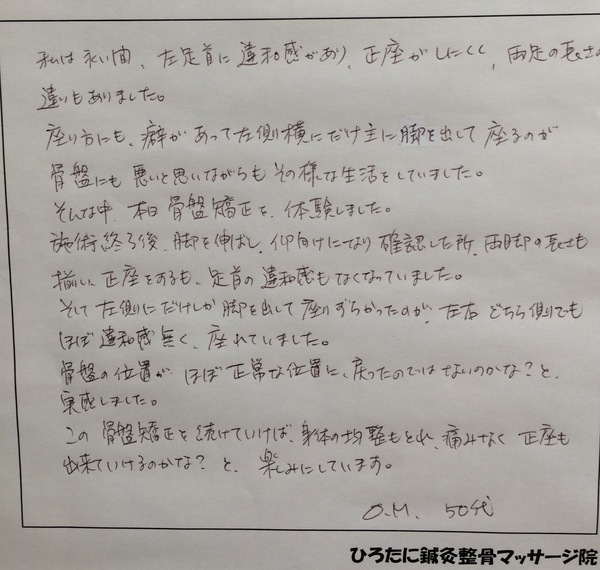 私は永い間、左足首に違和感があり、正座がしにくく、両足の長さの
違いもありました。
座り方にも、癖があって左側横にだけ主に脚を出して座るのが
骨盤にも悪いと思いながらもその様な生活をしていました。
そんな中、本日骨盤矯正を、体験しました。
施術終了後、脚を伸ばし、仰向けになり確認した所、両脚の長さも
揃い、正座をするも、足首の違和感もなくなっていました。
そして左側にだけしか脚を出して座りずらかったのが、左右どちら側でも
ほぼ違和感無く、座れていました。
骨盤の位置が、ほぼ正常な位置に、戻ったのではないのかな？と、
実感しました。
この骨盤矯正を続けていけば、身体の均整もとれ、痛みなく正座も
出来ていけるのかな？と、楽しみにしています。
O.M. 50代
ひろたに鍼灸整骨マッサージ院